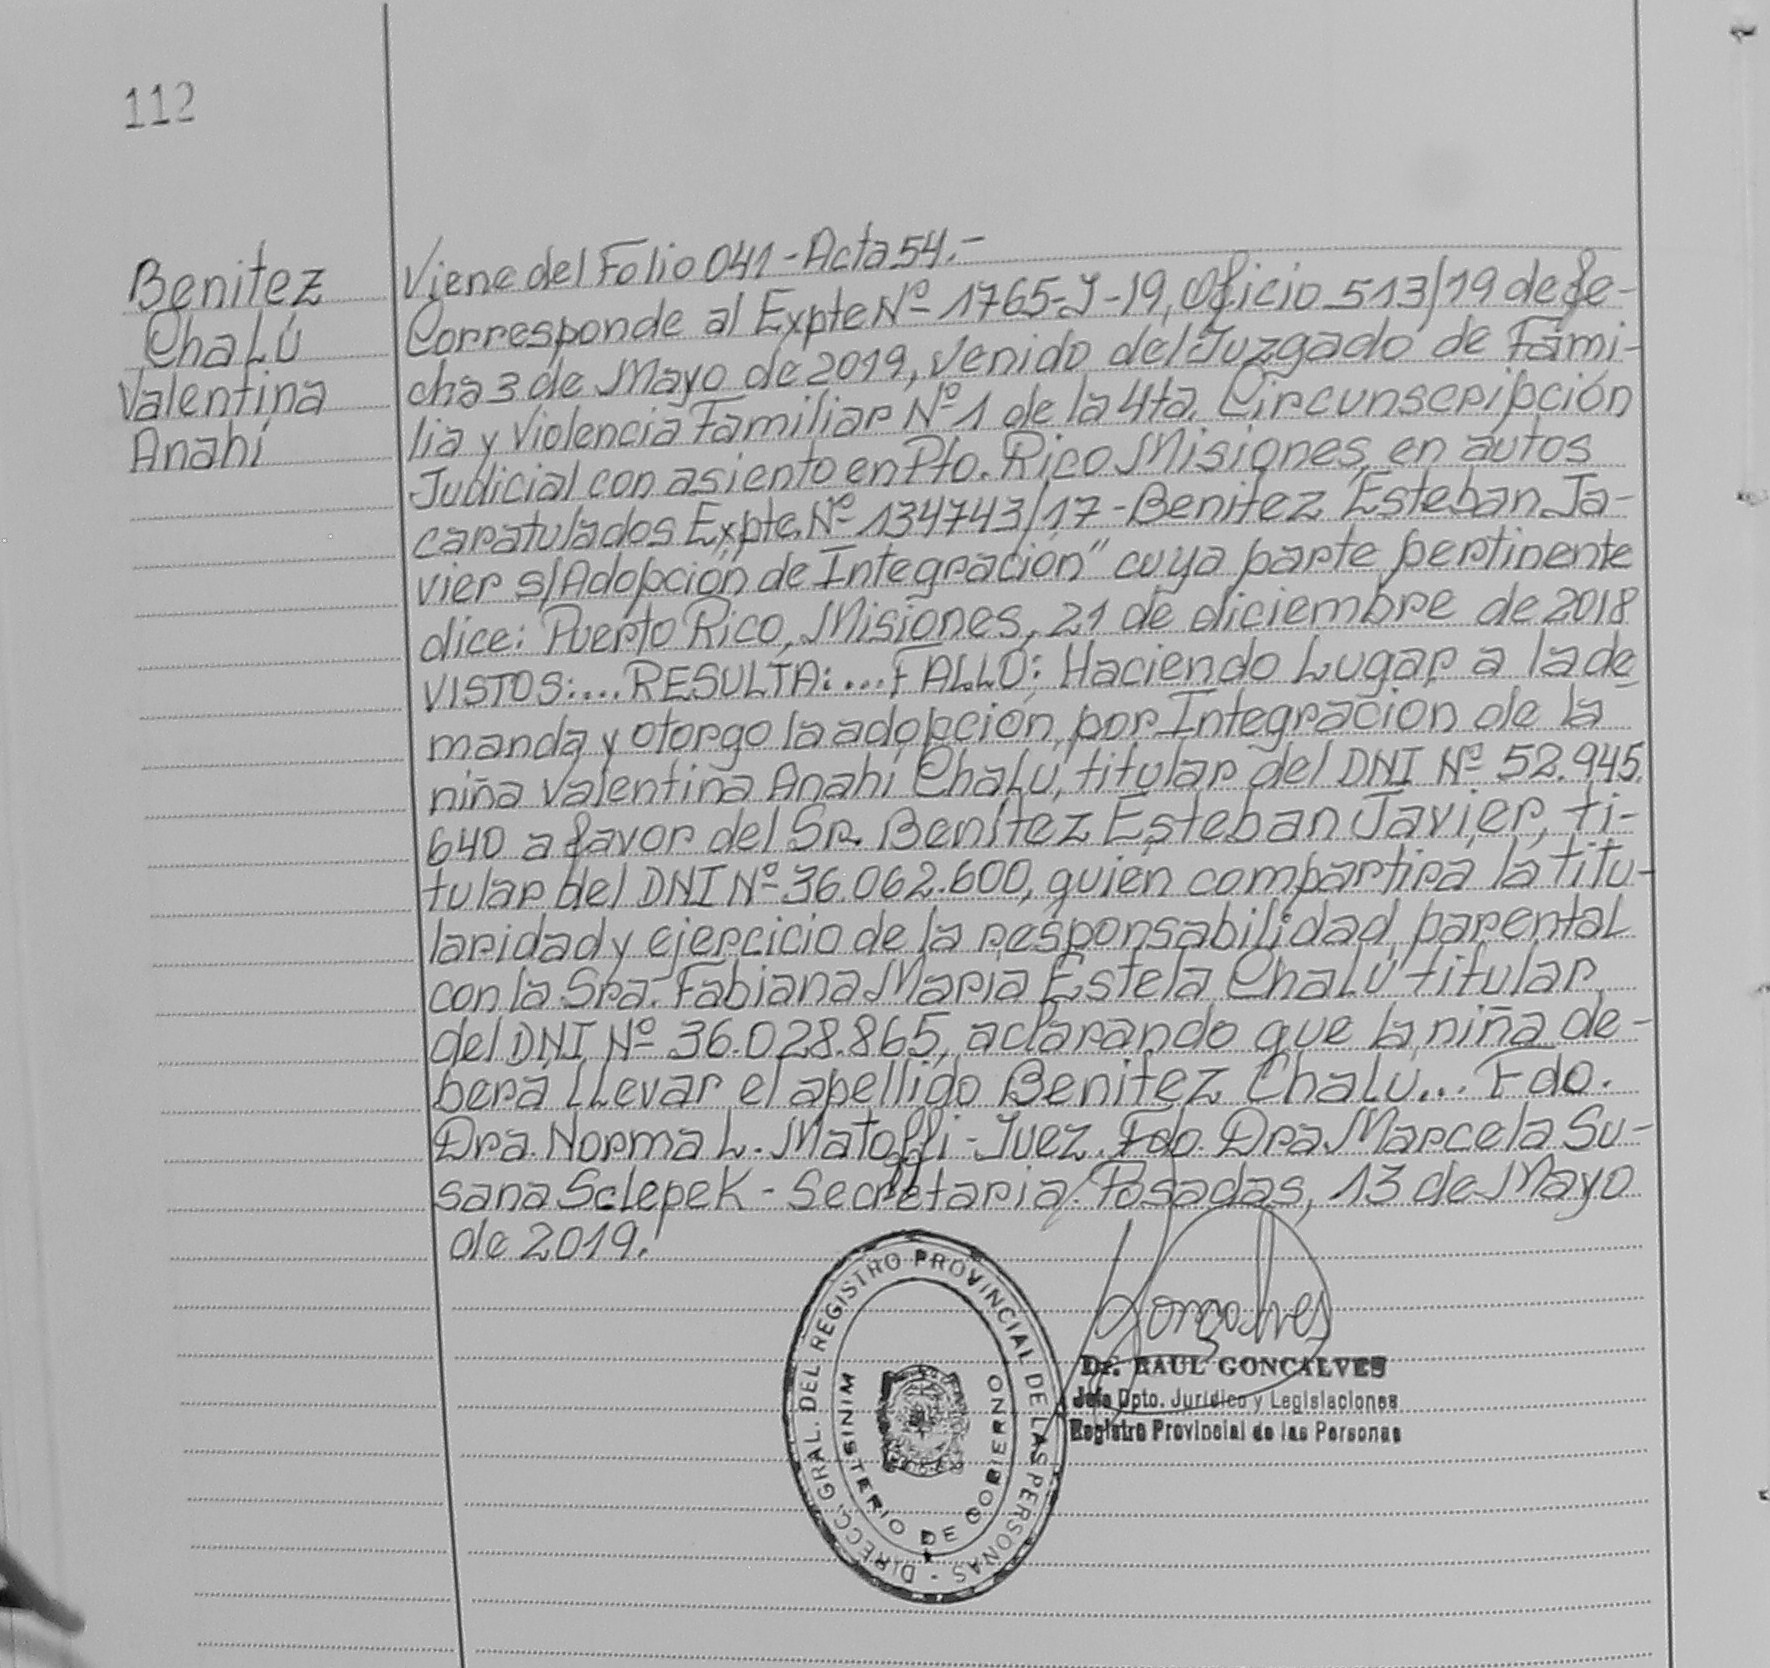 112
Benitez
Chalú
Valentina
Anahí
Viene del Folio 041 - Acta 54.-
Corresponde al Expte Nº 1765-J-19, Oficio 513/19 de fe-
cha 3 de Mayo de 2019, venido del Juzgado de Fami-
lia y Violencia Familiar Nº 1 de la 4ta. Circunscripción
Judicial con asiento en Pto. Rico Misiones, en autos
caratulados Expte. Nº 134743/17 - Benitez Esteban Ja-
vier s/Adopción de Integración" cuya parte pertinente
dice: Puerto Rico, Misiones, 21 de diciembre de 2018
VISTOS:... RESULTA:... FALLO: Haciendo Lugar a la de
manda y otorgo la adopción por Integración de la
niña Valentina Anahí Chalú, titular del DNI Nº 52.945.
640 a favor del Sr. Benítez Esteban Javier, ti-
tular del DNI Nº 36.062.600, quien compartirá la titu-
laridad y ejercicio de la responsabilidad parental
con la Sra. Fabiana María Estela Chalú titular
del DNI Nº 36.028.865, aclarando que la niña de-
berá llevar el apellido Benitez Chalú... Fdo.
Dra. Norma L. Matoffi - Juez. Fdo. Dra Marcela Su-
sana Sclepek - Secretaria. Posadas, 13 de Mayo
de 2019.
DIRECC. GRAL. DEL REGISTRO PROVINCIAL DE LAS PERSONAS -
MINISTERIO DE GOBIERNO
Goncalves
Dr. RAUL GONCALVES
Jefe Dpto. Jurídico y Legislaciones
Registro Provincial de las Personas